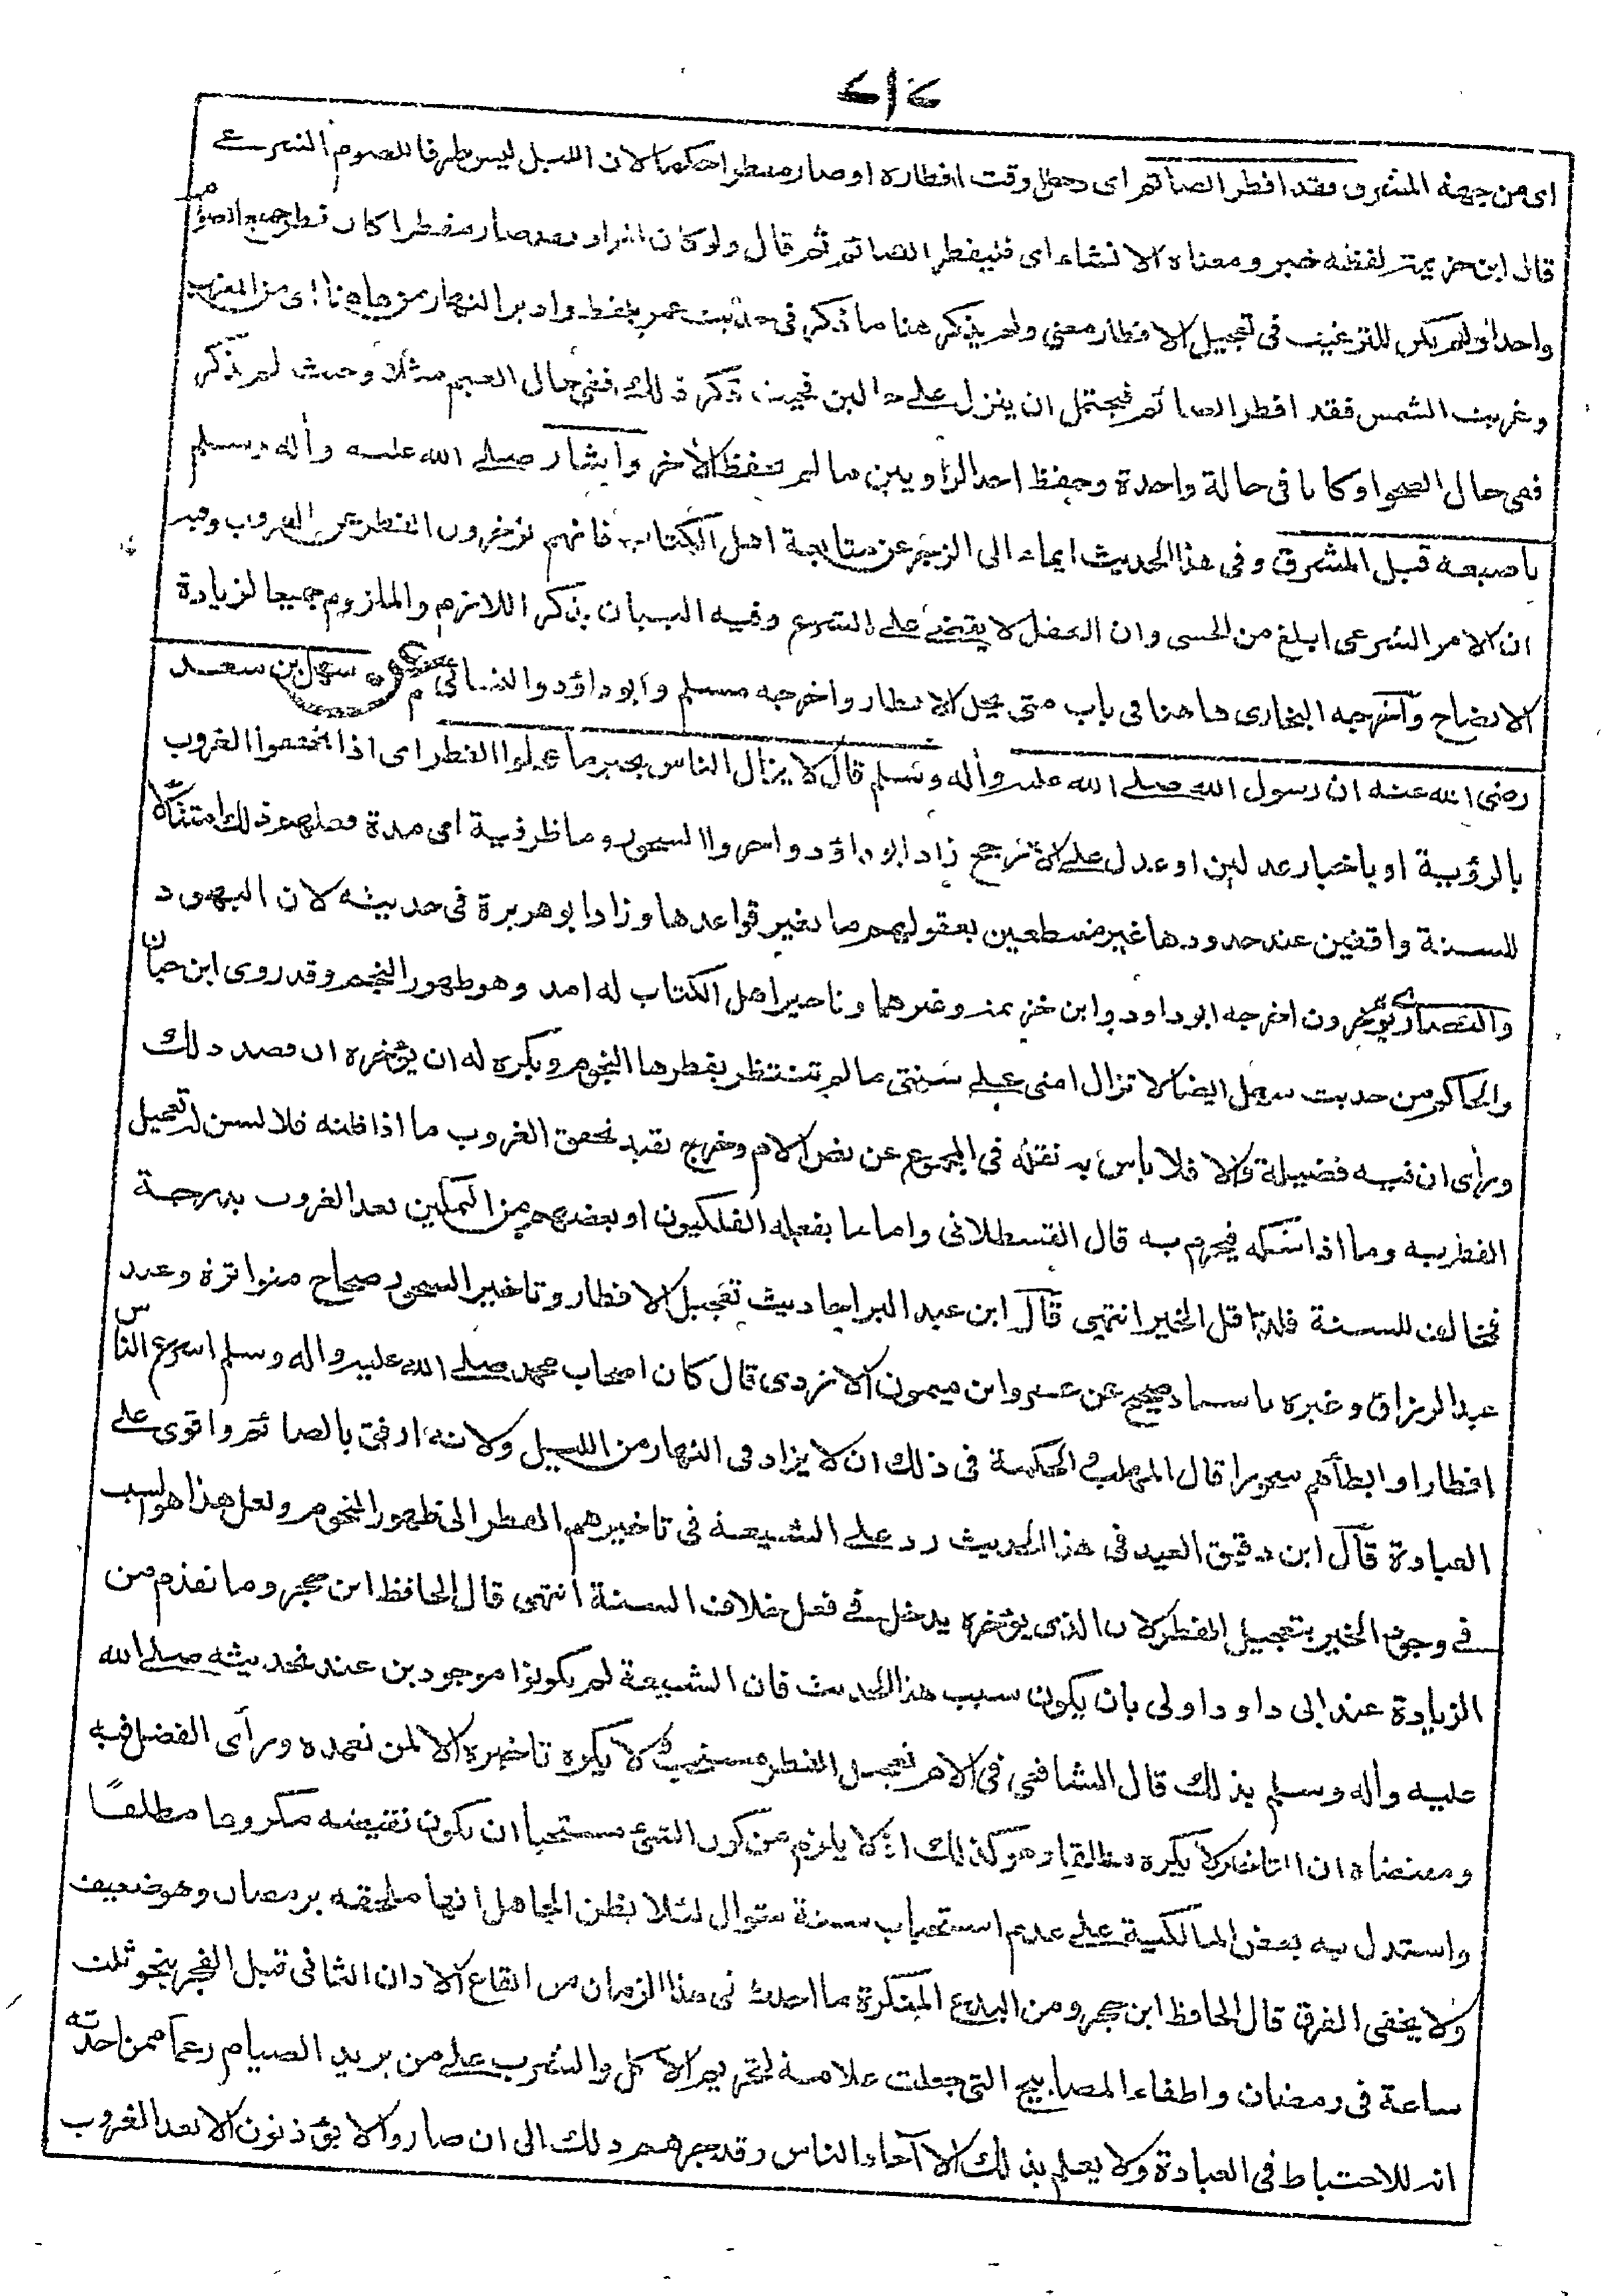 اى من جهة المشرق فقد افطر الصائم اى دخل وقت افطاره او صار مفطرا حكما لان الليل ليس ظرفا للصوم الشرعى
قال ابن خزيمة لفظه خبر ومعناه الانشاء اى فليفطر الصائم ثم قال ولو كان المراد فقد صار مفطرا كان فطر جميع الصوام
واحدا ولم يكن للترغيب فى تعجيل الافطار معنى ولم يذكر هنا ما ذكر فى حديث عمر بلفظ وادبر النهار من هاهنا اى من المغرب
وغربت الشمس فقد افطر الصائم فيحتمل ان ينزل على حالين فحيث ذكر ذلك ففى حال الغيم مثلا وحيث لم يذكر
ففى حال الصحو او كانا فى حالة واحدة وحفظ احد الراويين ما لم يحفظ الآخر واشار صلى الله عليه وآله وسلم
باصبعه قبل المشرق وفى هذا الحديث ايماء الى الزجر عن متابعة اهل الكتاب فانهم يؤخرون الفطر عن الغروب وفيه
ان الامر الشرعى ابلغ من الحسى وان العقل لا يقضى على الشرع وفيه البيان بذكر اللازم والملزوم جميعا لزيادة
الايضاح وأخرجه البخارى هاهنا فى باب متى يحل الافطار واخرجه مسلم وابو داؤد والنسائى عن سهل بن سعد
رضى الله عنه ان رسول الله صلى الله عليه وآله وسلم قال لا يزال الناس بخير ما عجلوا الفطر اى اذا تحققوا الغروب
بالرؤية او باخبار عدلين او عدل على الارجح زاد ابو داؤد واخروا السحور وما ظرفية اى مدة فعلهم ذلك امتثالا
للسنة واقفين عند حدودها غير متنطعين بعقولهم ما يغير قواعدها وزاد ابو هريرة فى حديثه لان اليهود
والنصارى يؤخرون اخرجه ابو داود وابن خزيمة وغيرهما وتاخير اهل الكتاب له امد وهو ظهور النجم وقد روى ابن حبان
والحاكم من حديث سهل ايضا لا تزال امتى على سنتى ما لم تنتظر بفطرها النجوم ويكره له ان يؤخره ان قصد ذلك
ورأى ان فيه فضيلة والا فلا باس به نقله فى المجموع عن نص الام وخرج بقيد تحقق الغروب ما اذا ظنه فلا يسن له تعجيل
الفطر به وما اذا شكه فيحرم به قال القسطلانى واما ما يفعله الفلكيون او بعضهم من التمكين بعد الغروب بدرجة
فمخالف للسنة فلذا قل الخير انتهى قال ابن عبد البر احاديث تعجيل الافطار وتاخير السحور صحاح متواترة وعند
عبد الرزاق وغيره باسناد صحيح عن عمرو ابن ميمون الازدى قال كان اصحاب محمد صلى الله عليه وآله وسلم اسرع الناس
افطارا وابطأهم سحورا قال المهلب والحكمة فى ذلك ان لا يزاد فى النهار من الليل ولانه ارفق بالصائم واقوى على
العبادة قال ابن دقيق العيد فى هذا الحديث رد على الشيعة فى تاخيرهم الفطر الى ظهور النجوم ولعل هذا هو السبب
فى وجود الخير بتعجيل الفطر لان الذى يؤخره يدخل فى فعل خلاف السنة انتهى قال الحافظ ابن حجر وما تقدم من
الزيادة عند ابى داود اولى بان يكون سبب هذا الحديث فان الشيعة لم يكونوا موجودين عند تحديثه صلى الله
عليه وآله وسلم بذلك قال الشافعى فى الام تعجيل الفطر مستحب ولا يكره تاخيره الا لمن تعمده ورأى الفضل فيه
ومقتضاه ان التاخير لا يكره مطلقا وهو كذلك اذ لا يلزم من كون الشئ مستحبا ان يكون نقيضه مكروها مطلقا
واستدل به بعض المالكية على عدم استحباب ستة شوال لئلا يظن الجاهل انها ملحقه برمضان وهو ضعيف
ولا يخفى الفرق قال الحافظ ابن حجر ومن البدع المنكرة ما احدث فى هذا الزمان من ايقاع الاذان الثانى قبل الفجر بنحو ثلث
ساعة فى رمضان واطفاء المصابيح التى جعلت علامة لتحريم الاكل والشرب على من يريد الصيام زعما ممن احدثه
انه للاحتياط فى العبادة ولا يعلم بذلك الا آحاد الناس وقد جرهم ذلك الى ان صاروا لا يؤذنون الا بعد الغروب